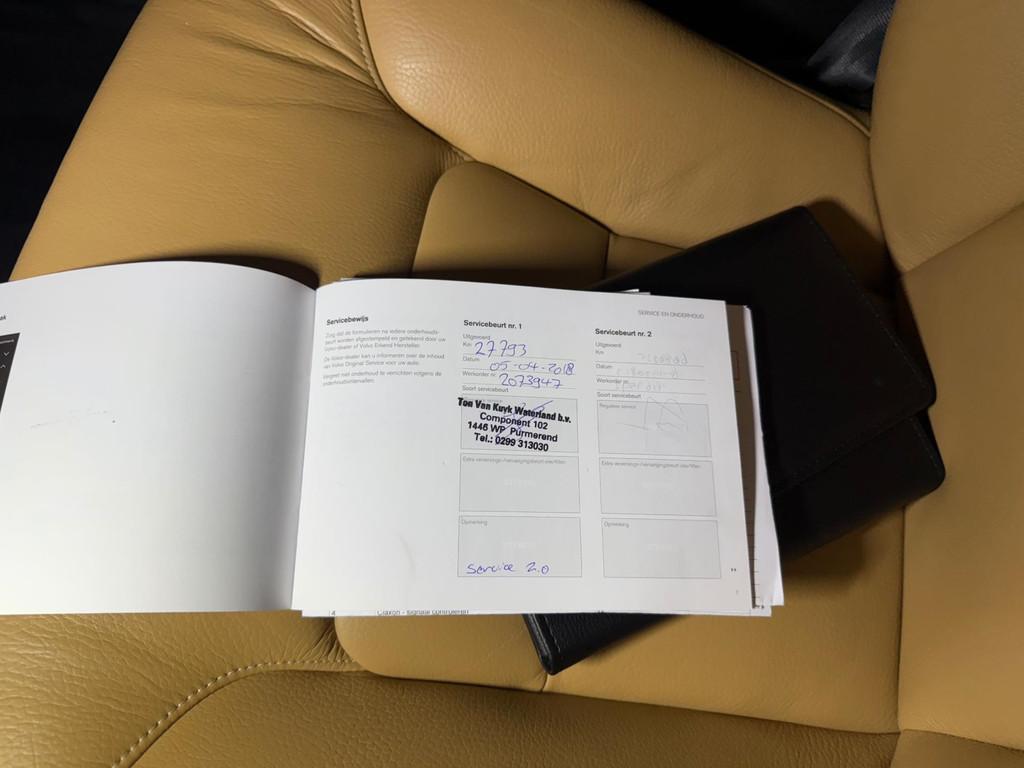 SERVICE EN ONDERHOUD
Servicebewijs
Zorg dat de formulieren na iedere onderhouds-
beurt worden afgestempeld en getekend door uw
Volvo-dealer of Volvo Erkend Hersteller.
De Volvo-dealer kan u informeren over de inhoud
van Volvo Original Service voor uw auto.
Vergeet niet onderhoud te verrichten volgens de
onderhoudsintervallen.
Servicebeurt nr. 1
Uitgevoerd
Km 27793
Datum 05-04-2018
Werkorder nr. 2073947
Soort servicebeurt
Ton Van Kuyk Waterland b.v.
Component 102
1446 WP Purmerend
Tel.: 0299 313030
Opmerking
Service 2.0
Servicebeurt nr. 2
Uitgevoerd
Km
Datum
Werkorder nr.
Soort servicebeurt
Reguliere service
Opmerking
4 Claxon - signaal controleren